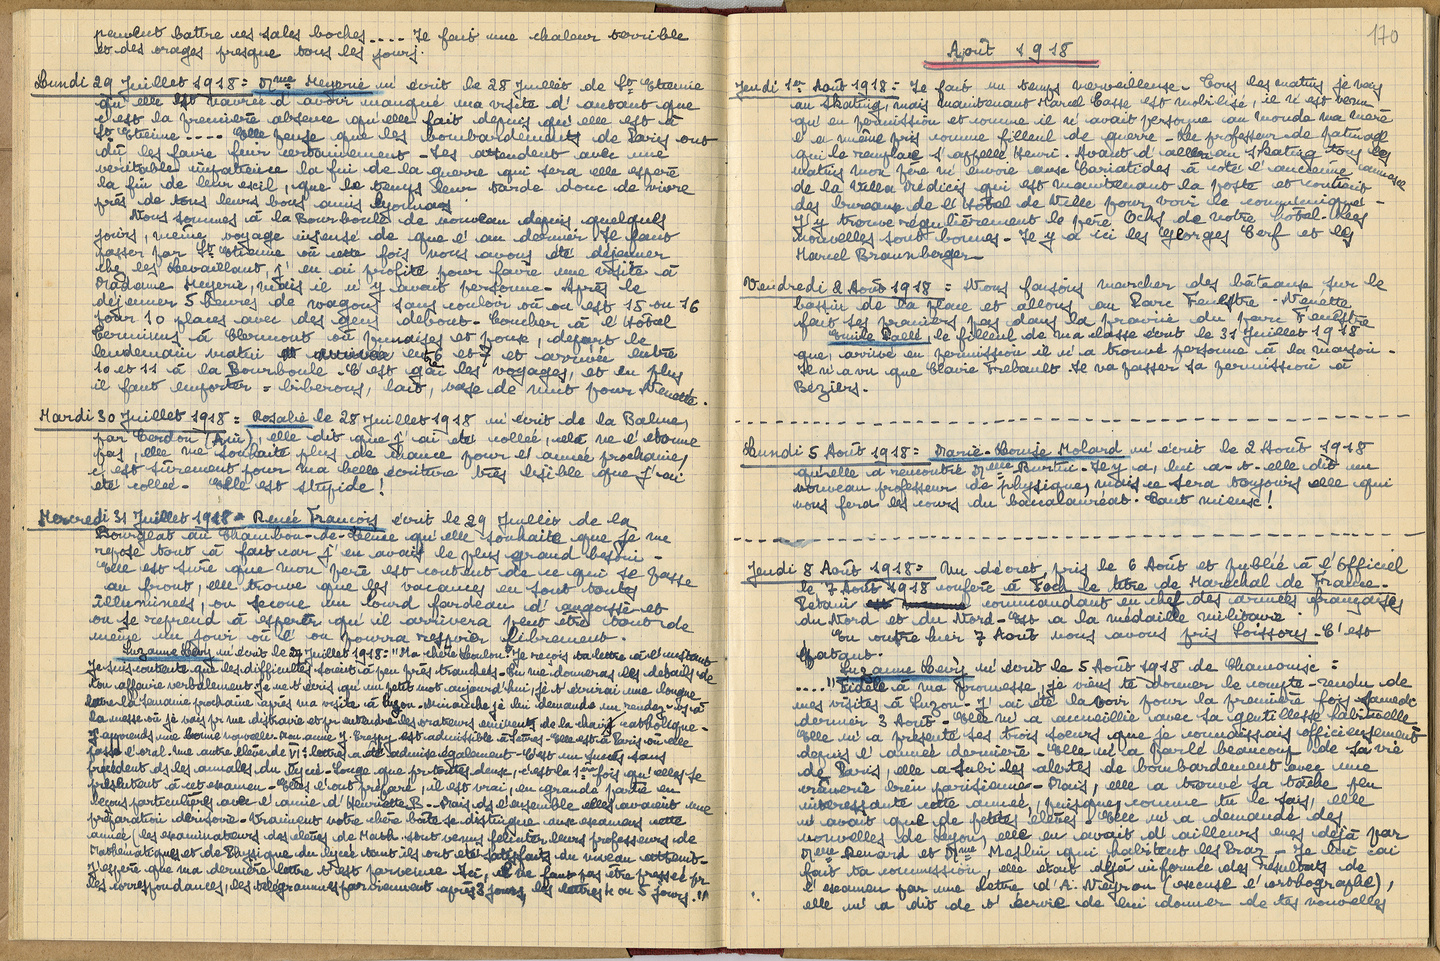 peuvent battre ces sales boches.... Il fait une chaleur terrible
et des orages presque tous les jours.
Lundi 29 Juillet 1918 = Mme Meyerié m'écrit le 28 Juillet de St Etienne
qu'elle est navrée d'avoir manqué ma visite d'autant que
c'est la première absence qu'elle fait depuis qu'elle est à
St Etienne.... Elle pense que les bombardements de Paris ont
dû les faire fuir certainement - Les attendent avec une
véritable impatience la fin de la guerre qui sera elle espère
la fin de leur exil, que le temps leur tarde donc de vivre
près de tous leurs bons amis lyonnais
Nous sommes à la Bourboule de nouveau depuis quelques
jours, même voyage insensé de que l'an dernier. Il faut
passer par St Etienne où cette fois nous avons été déjeuner
chez les Levaillant, j'en ai profité pour faire une visite à
Madame Meyerié, mais il n'y avait personne - Après le
déjeuner 5 heures de wagon sans couloir où on est 15 ou 16
pour 10 places avec des gens debout - Coucher à l'Hôtel
Terminus à Clermont où punaises et puce, départ le
lendemain matin et arrivée entre 6 et 7 et arrivée entre
10 et 11 à la Bourboule - C'est gai les voyages, et en plus
il faut emporter = biberons, lait, vase de nuit pour Nenette.
Mardi 30 Juillet 1918 = Rosalie le 28 Juillet 1918 m'écrit de la Balme,
par Cerdon (Ain), elle dit que j'ai été collée, cela ne l'étonne
pas, elle me souhaite plus de chance pour l'année prochaine,
c'est sûrement pour ma belle écriture très lisible que j'ai
été collée - Elle est stupide !
Mercredi 31 Juillet 1918 = Renée François écrit le 29 Juillet de la
Bourgeat au Chambon-de- qu'elle souhaite que je me
repose tout à fait car j'en avais le plus grand besoin -
Elle est sûre que mon père est content de ce qui se passe
au front, elle trouve que les vacances en sont toutes
illuminées, on secoue un lourd fardeau d'angoisse et
on se reprend à espérer qu'il arrivera peut être tout de
même un jour où l'on pourra respirer librement.
Suzanne Lévy m'écrit le 29 Juillet 1918 = "Ma chère Loulou. Je reçois ta lettre à l'instant
Je suis contente que les difficultés soient à peu près tranchées - Tu me donneras les détails de
ton affaire verbalement. Je ne t'écris qu'un petit mot aujourd'hui, je t'écrirai une longue
lettre la semaine prochaine après ma visite à Luzon - Dimanche je lui demande un rendez-vs à
la messe où je vais pr me distraire et pr entendre les orateurs éminents de la chaire catholique -
Js apprends une bonne nouvelle - Son amie Y. Crespy est admissible à Sèvres - Elle est à Paris où elle
passe l'oral. Une autre élève de VI: lettres a été admise également - C'est un succès sans
précédent ds les annales du lycée - Songe que pr toutes deux, c'est la 1ère fois qu'elles se
présentent à cet examen - Elles l'ont préparé, il est vrai, en grande partie en
leçons particulières avec l'amie d'Henriette B. - Mais ds l'ensemble elles avaient une
préparation dérisoire - Vraiment votre chère boîte se distingue aux examens cette
année (les examinateurs des élèves de Math. sont venus féliciter leurs professeurs de
Mathématiques et de Physique du lycée tant ils ont été satisfaits du niveau atteint -
J'espère que ma dernière lettre t'est parvenue. Ici, il ne faut pas être pressé pr
les correspondances, les télégrammes parviennent après 3 jours, les lettres 4 ou 5 jours."
170
Août 1918
Jeudi 1er Août 1918 = Il fait un temps merveilleux - Tous les matins je vais
au skating, mais maintenant Marcel Casse est mobilisé, il n'est venu
qu'en permission et comme il n'avait personne au monde ma mère
l'a même pris comme filleul de guerre - Le professeur de patinage
qui le remplace s'appelle Henri. Avant d'aller au skating tous les
matins mon père m'envoie aux Cariatides à côté l'ancienne annexe
de la Villa Médicis qui est maintenant la poste et contient
des bureaux de l'Hôtel de Ville pour voir le communiqué -
J'y trouve régulièrement le père Ochs de notre hôtel - Les
nouvelles sont bonnes - Il y a ici les Georges Cerf et les
Marcel Braunberger -
Vendredi 2 Août 1918 = Nous faisons marcher des bateaux sur le
bassin de la place et allons au Parc Fenestre - Nenette
fait ses premiers pas dans la prairie du parc Fenestre
Emile Pallé, le filleul de ma classe écrit le 31 Juillet 1918
que, arrivé en permission il n'a trouvé personne à la maison -
Il n'a vu que Claire Trebault. Il va passer sa permission à
Béziers.
Lundi 5 Août 1918 = Marie-Louise Molard m'écrit le 2 Août 1918
qu'elle a rencontré Mme Burtin - Il y a, lui a-t-elle dit un
nouveau professeur de physique, mais ce sera toujours elle qui
nous fera les cours du baccalauréat. Tant mieux !
Jeudi 8 Août 1918 = Un décret, pris le 6 Août et publié à l'Officiel
le 7 Août 1918 confère à Foch le titre de Maréchal de France -
Pétain commandant en chef des armées françaises
du Nord et du Nord-Est a la médaille militaire
En outre hier 7 Août nous avons pris Soissons - C'est
épatant.
Suzanne Lévy m'écrit le 5 Août 1918 de Chamonix =
...."Fidèle à ma promesse, je viens te donner le compte-rendu de
mes visites à Luzon - J'ai été la voir pour la première fois samedi
dernier 3 Août - Elle m'a accueillie avec sa gentillesse habituelle -
Elle m'a présenté ses trois soeurs que je connaissais officieusement
depuis l'année dernière - Elle m'a parlé beaucoup de sa vie
de Paris, elle a subi les alertes de bombardement avec une
crânerie bien parisienne - Mais, elle a trouvé sa tâche peu
intéressante cette année, puisque, comme tu le sais, elle
n'avait que de petites élèves, Elle m'a demandé des
nouvelles de Lyon, elle en avait d'ailleurs eues déjà par
Mme Renard et Mme Meslin qui habitent les Praz - Je lui ai
fait ta commission, elle était déjà informée des résultats de
l'examen par une lettre d'A. Veyron (excuse l'orthographe),
elle m'a dit de t'écrire de lui donner de tes nouvelles